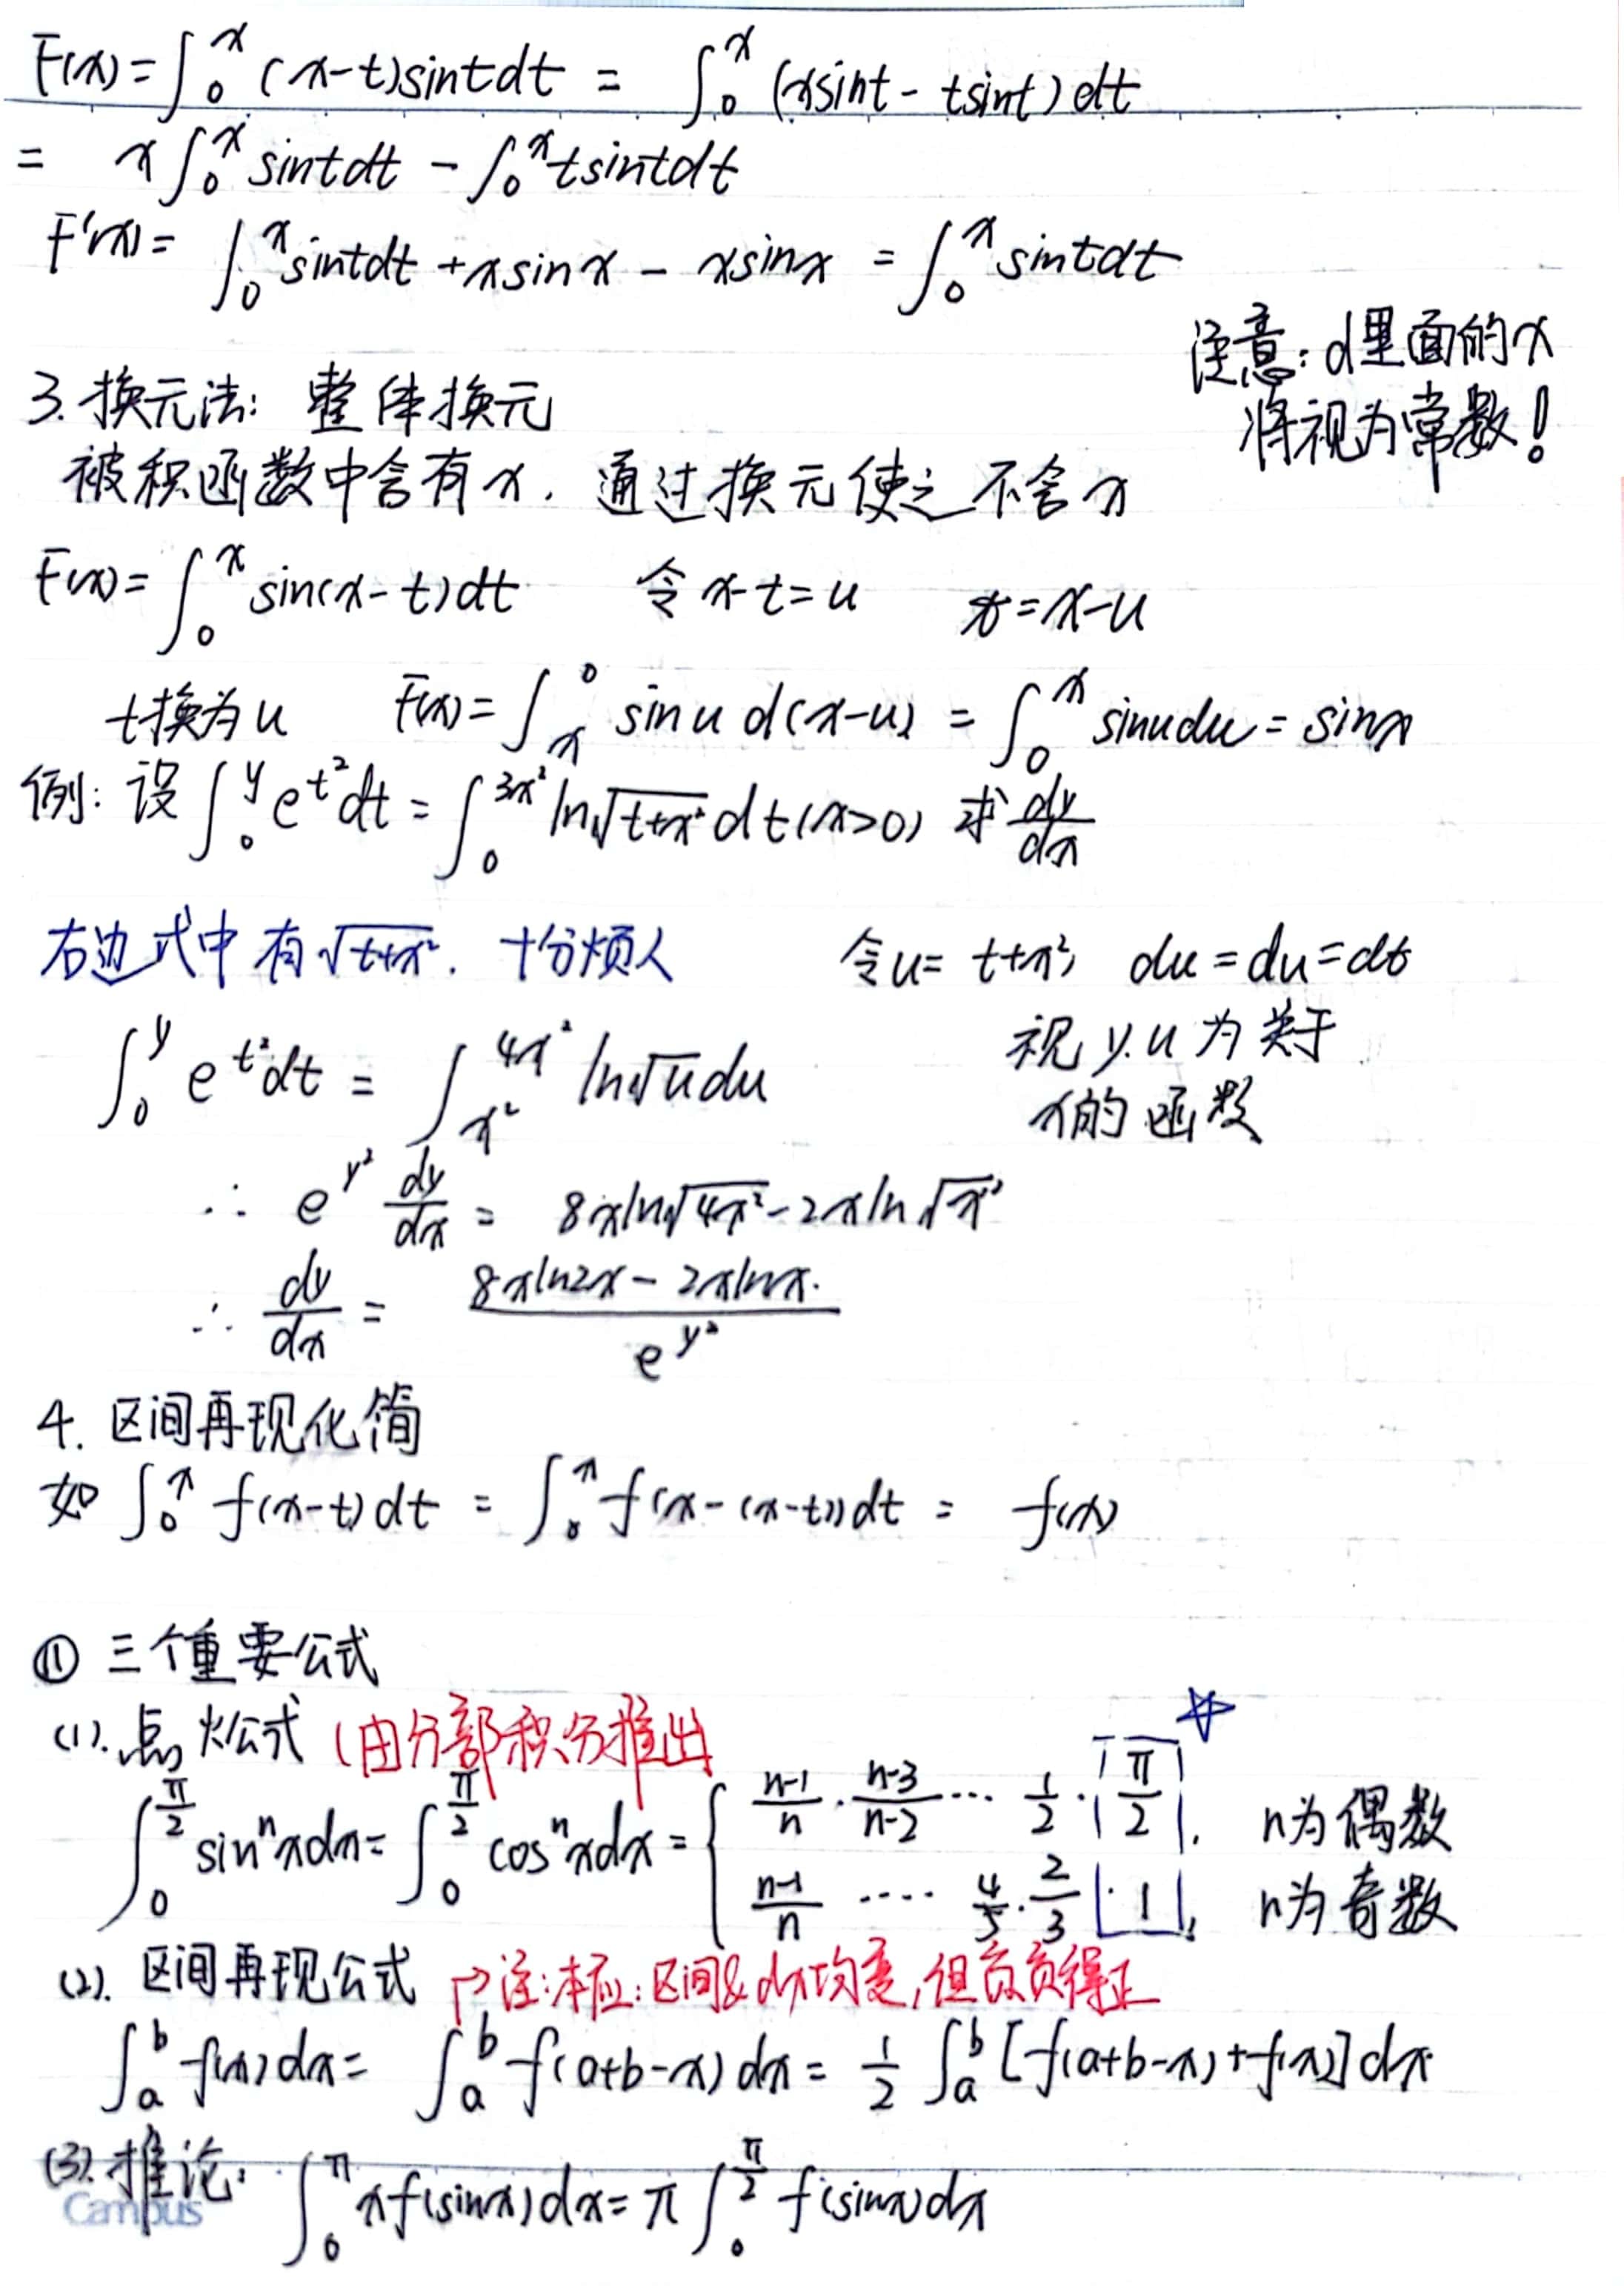 F(x)=∫₀ˣ (x-t)sintdt = ∫₀ˣ (xsint - tsint)dt
= x∫₀ˣ sintdt - ∫₀ˣ tsintdt
F'(x)= ∫₀ˣ sintdt + xsinx - xsinx = ∫₀ˣ sintdt
注意:d里面的x
将视为常数!
3.换元法: 整体换元
被积函数中含有x. 通过换元使之不含x
F(x)=∫₀ˣ sin(x-t)dt 令x-t=u t=x-u
t换为u F(x)=∫ₓ⁰ sinu d(x-u) = ∫₀ˣ sinudu = sinx
例: 设∫₀ʸ e^{t²}dt = ∫₀^{3x²} ln√(t+x²) dt(x>0) 求dy/dx
右边式中有√(t+x²). 十分烦人 令u= t+x², du=du=dt
视y.u为关于
x的函数
∫₀ʸ e^{t²}dt = ∫_{x²}^{4x²} ln√u du
∴ e^{y²} dy/dx = 8xln√(4x²) - 2xln√(x²)
∴ dy/dx = (8xln2x - 2xlnx.)/e^{y²}
4. 区间再现化简
如 ∫₀ˣ f(x-t)dt = ∫₀ˣ f(x-(x-t))dt = f(x)
⑪ 三个重要公式
(1).点火公式 (由分部积分推出
∫₀^{π/2} sinⁿxdx = ∫₀^{π/2} cosⁿxdx = { (n-1)/n · (n-3)/(n-2) ··· 1/2 · π/2, n为偶数
(n-1)/n ···· 4/5 · 2/3 · 1, n为奇数
(2). 区间再现公式 → 注:本应:区间&dx均变,但负负得正
∫ₐᵇ f(x)dx = ∫ₐᵇ f(a+b-x)dx = 1/2 ∫ₐᵇ [f(a+b-x)+f(x)]dx
(3).推论: ∫₀^π xf(sinx)dx = π∫₀^{π/2} f(sinx)dx
Campus